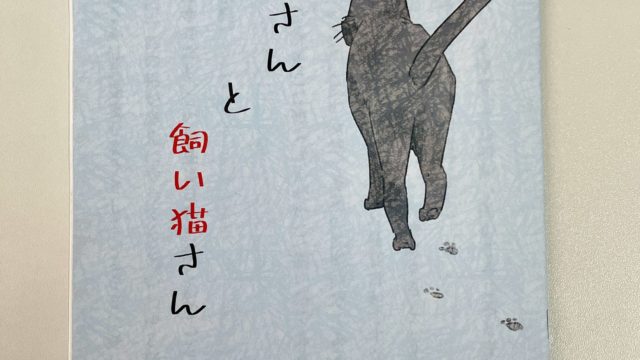 さん
と
飼い猫さん